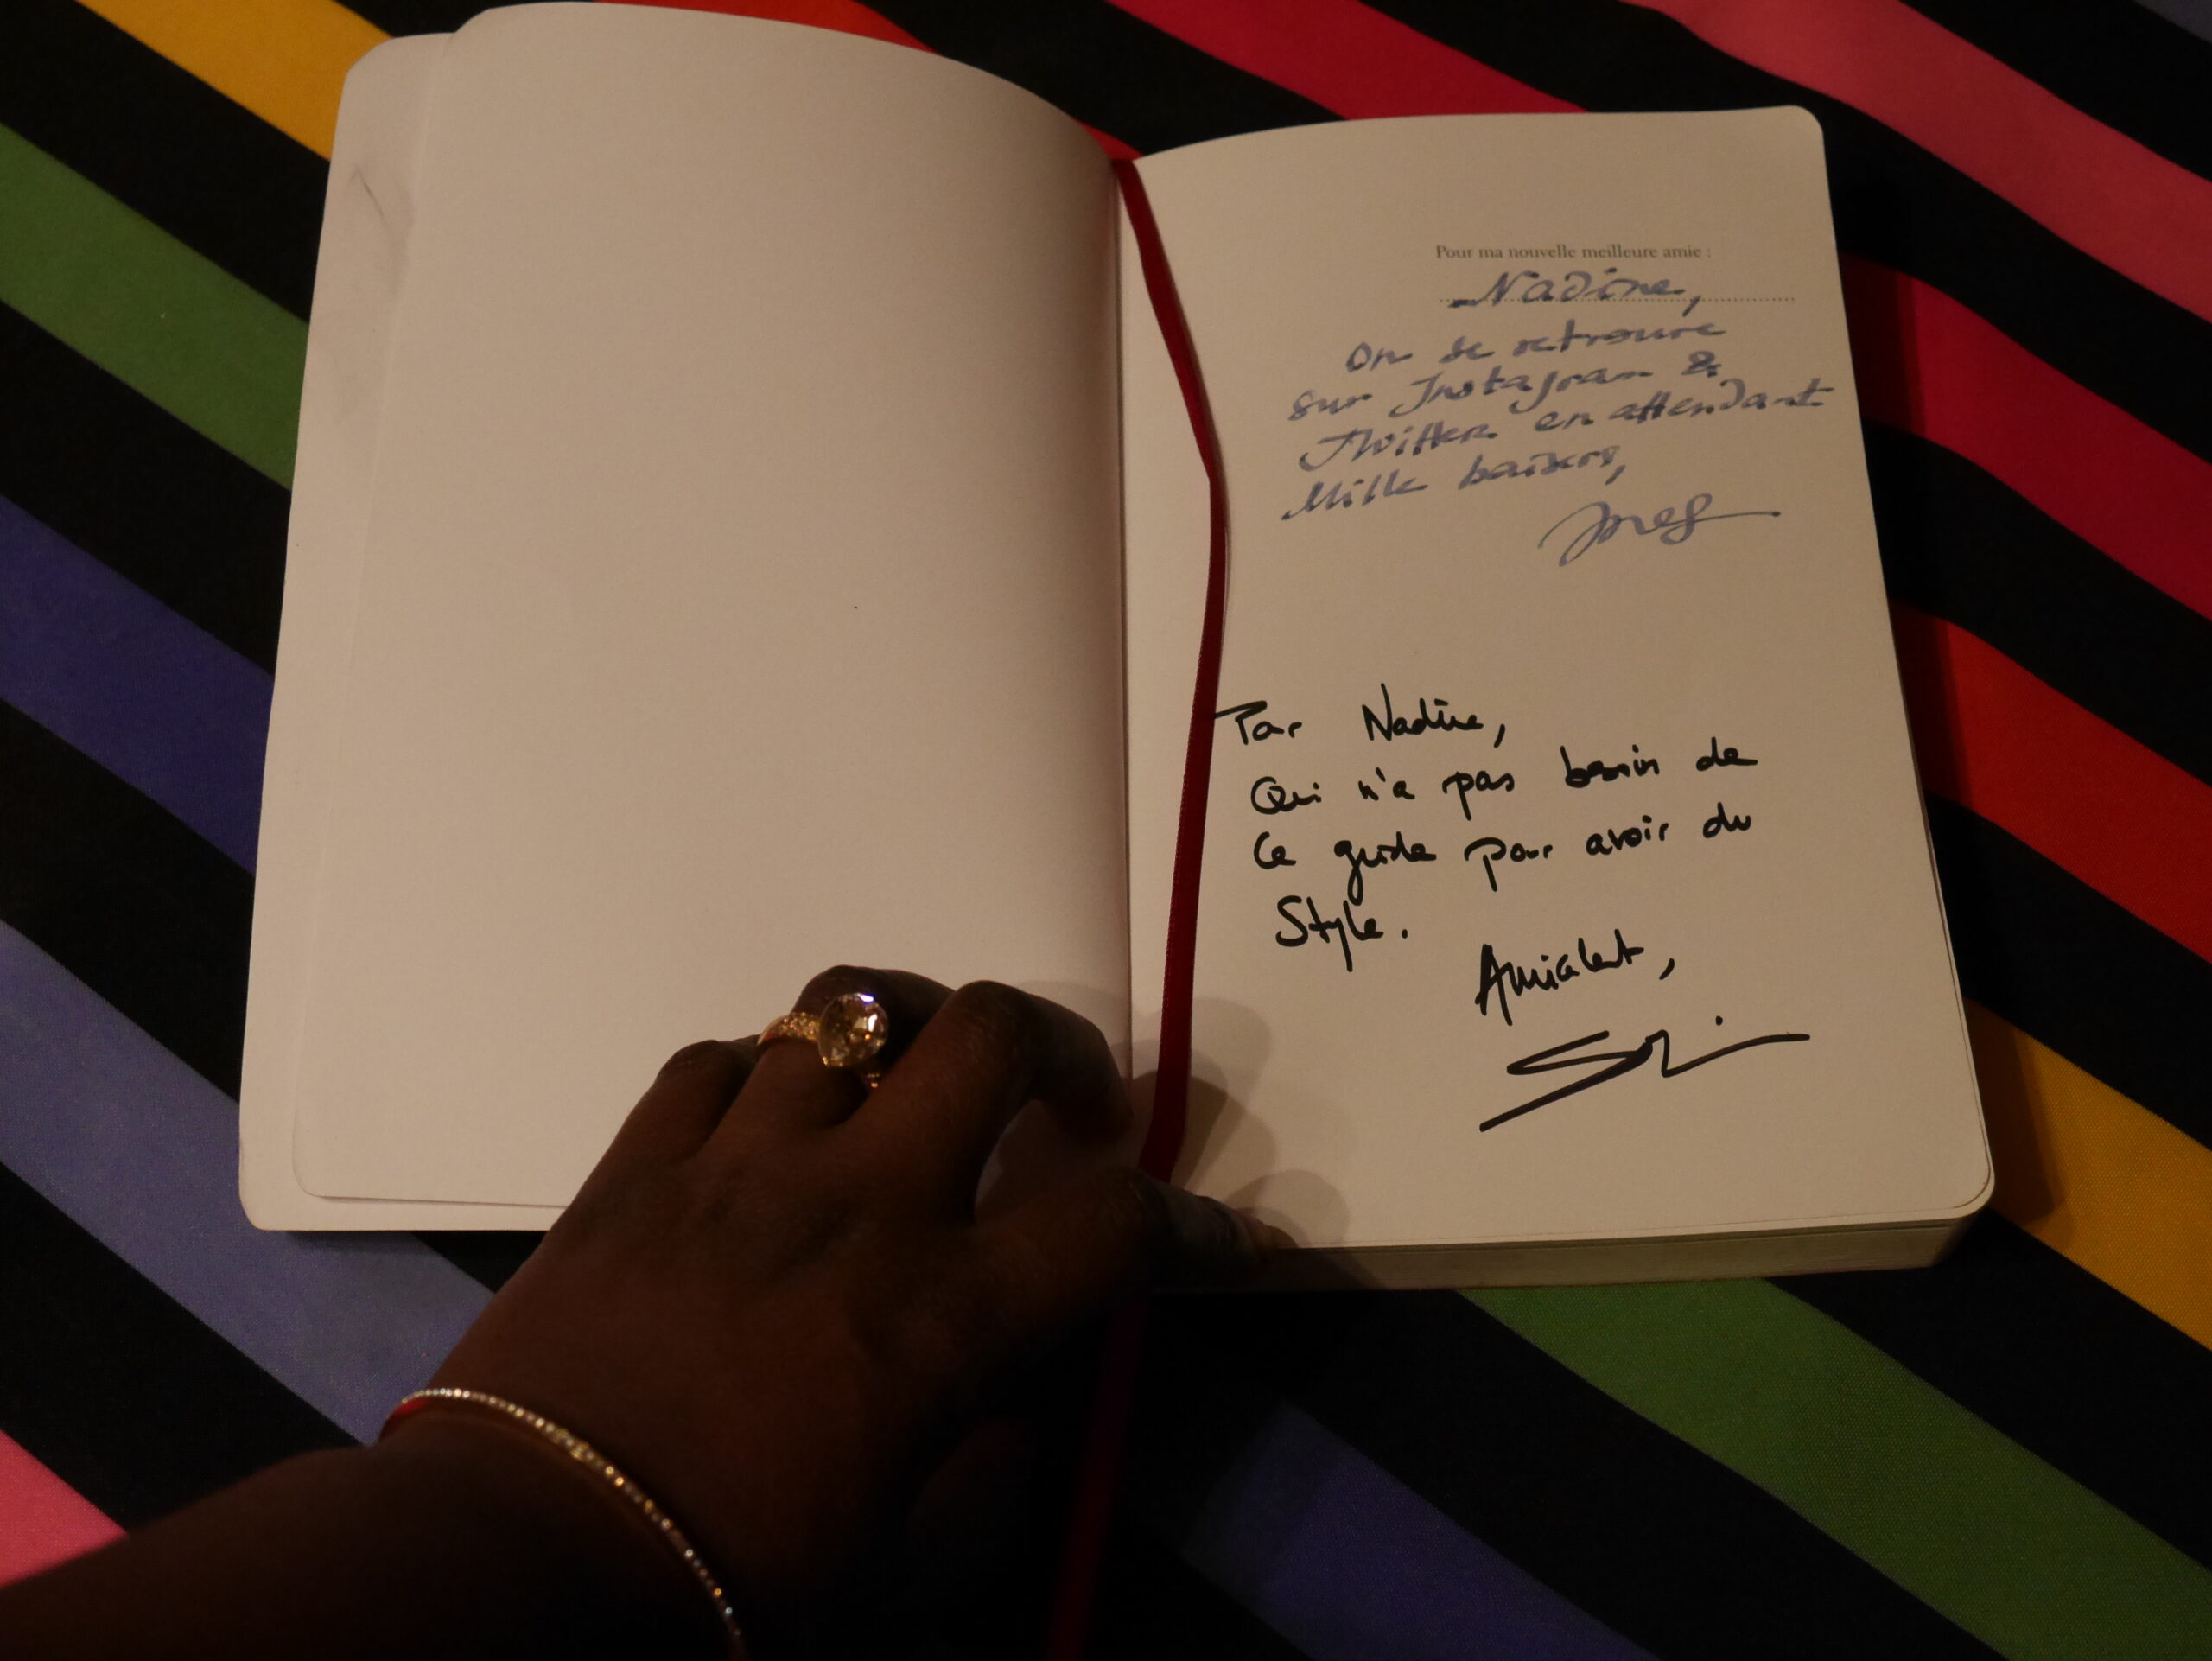 Pour ma nouvelle meilleure amie :
Nadine,
On se retrouve
sur Instagram &
Twitter en attendant
Mille baisers,
Ines
Par Nadine,
Qui n'a pas besoin de
Ce guide pour avoir du
Style.
Amicalement,